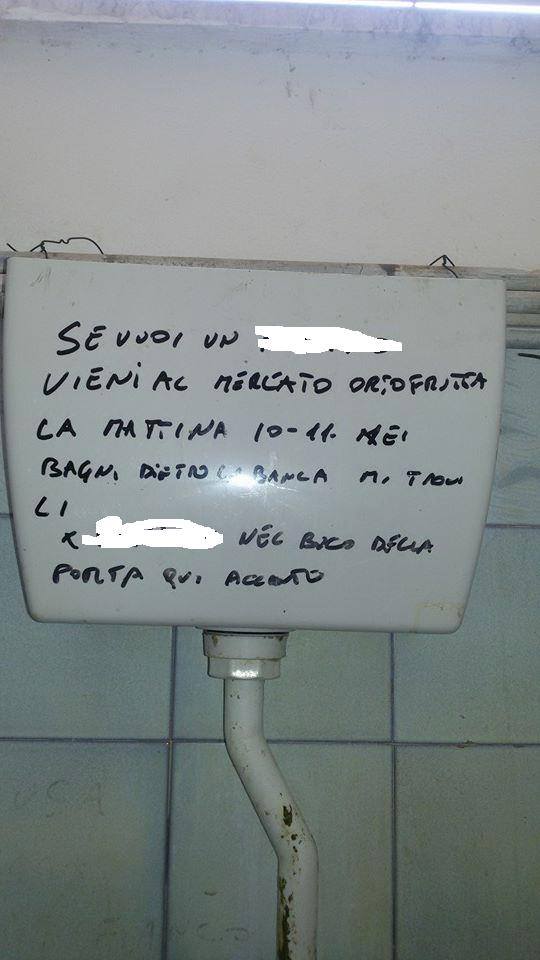 SE VUOI UN
VIENI AL MERCATO ORTOFRUTTA
LA MATTINA 10-11 NEI
BAGNI DIETRO LA BANCA MI TROVI
LI
X NEL BUCO DELLA
PORTA QUI ACCANTO